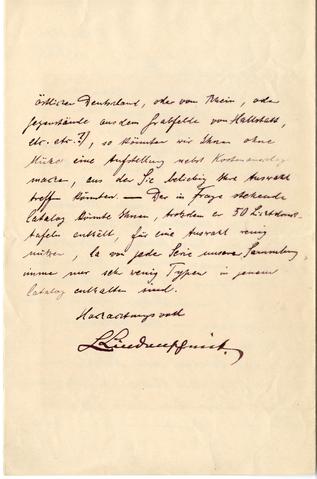 östliches Deutschland, oder vom Rhein, oder
Gegenstände aus dem Grabfelde von Hallstatt,
etc. etc.?), so könnten wir Ihnen ohne
Mühe eine Aufstellung nebst Kostenanschlag
machen, aus der Sie beliebig Ihre Auswahl
treffen könnten. — Der in Frage stehende
Catalog könnte Ihnen, trotzdem er 50 Lichtdruck-
tafeln enthält, für eine Auswahl wenig
nützen, da von jede Serie unsere Sammlung
immer nur sehr wenig Typen in jenem
Catalog enthalten sind.
Hochachtungsvoll
L. Lindenschmit.